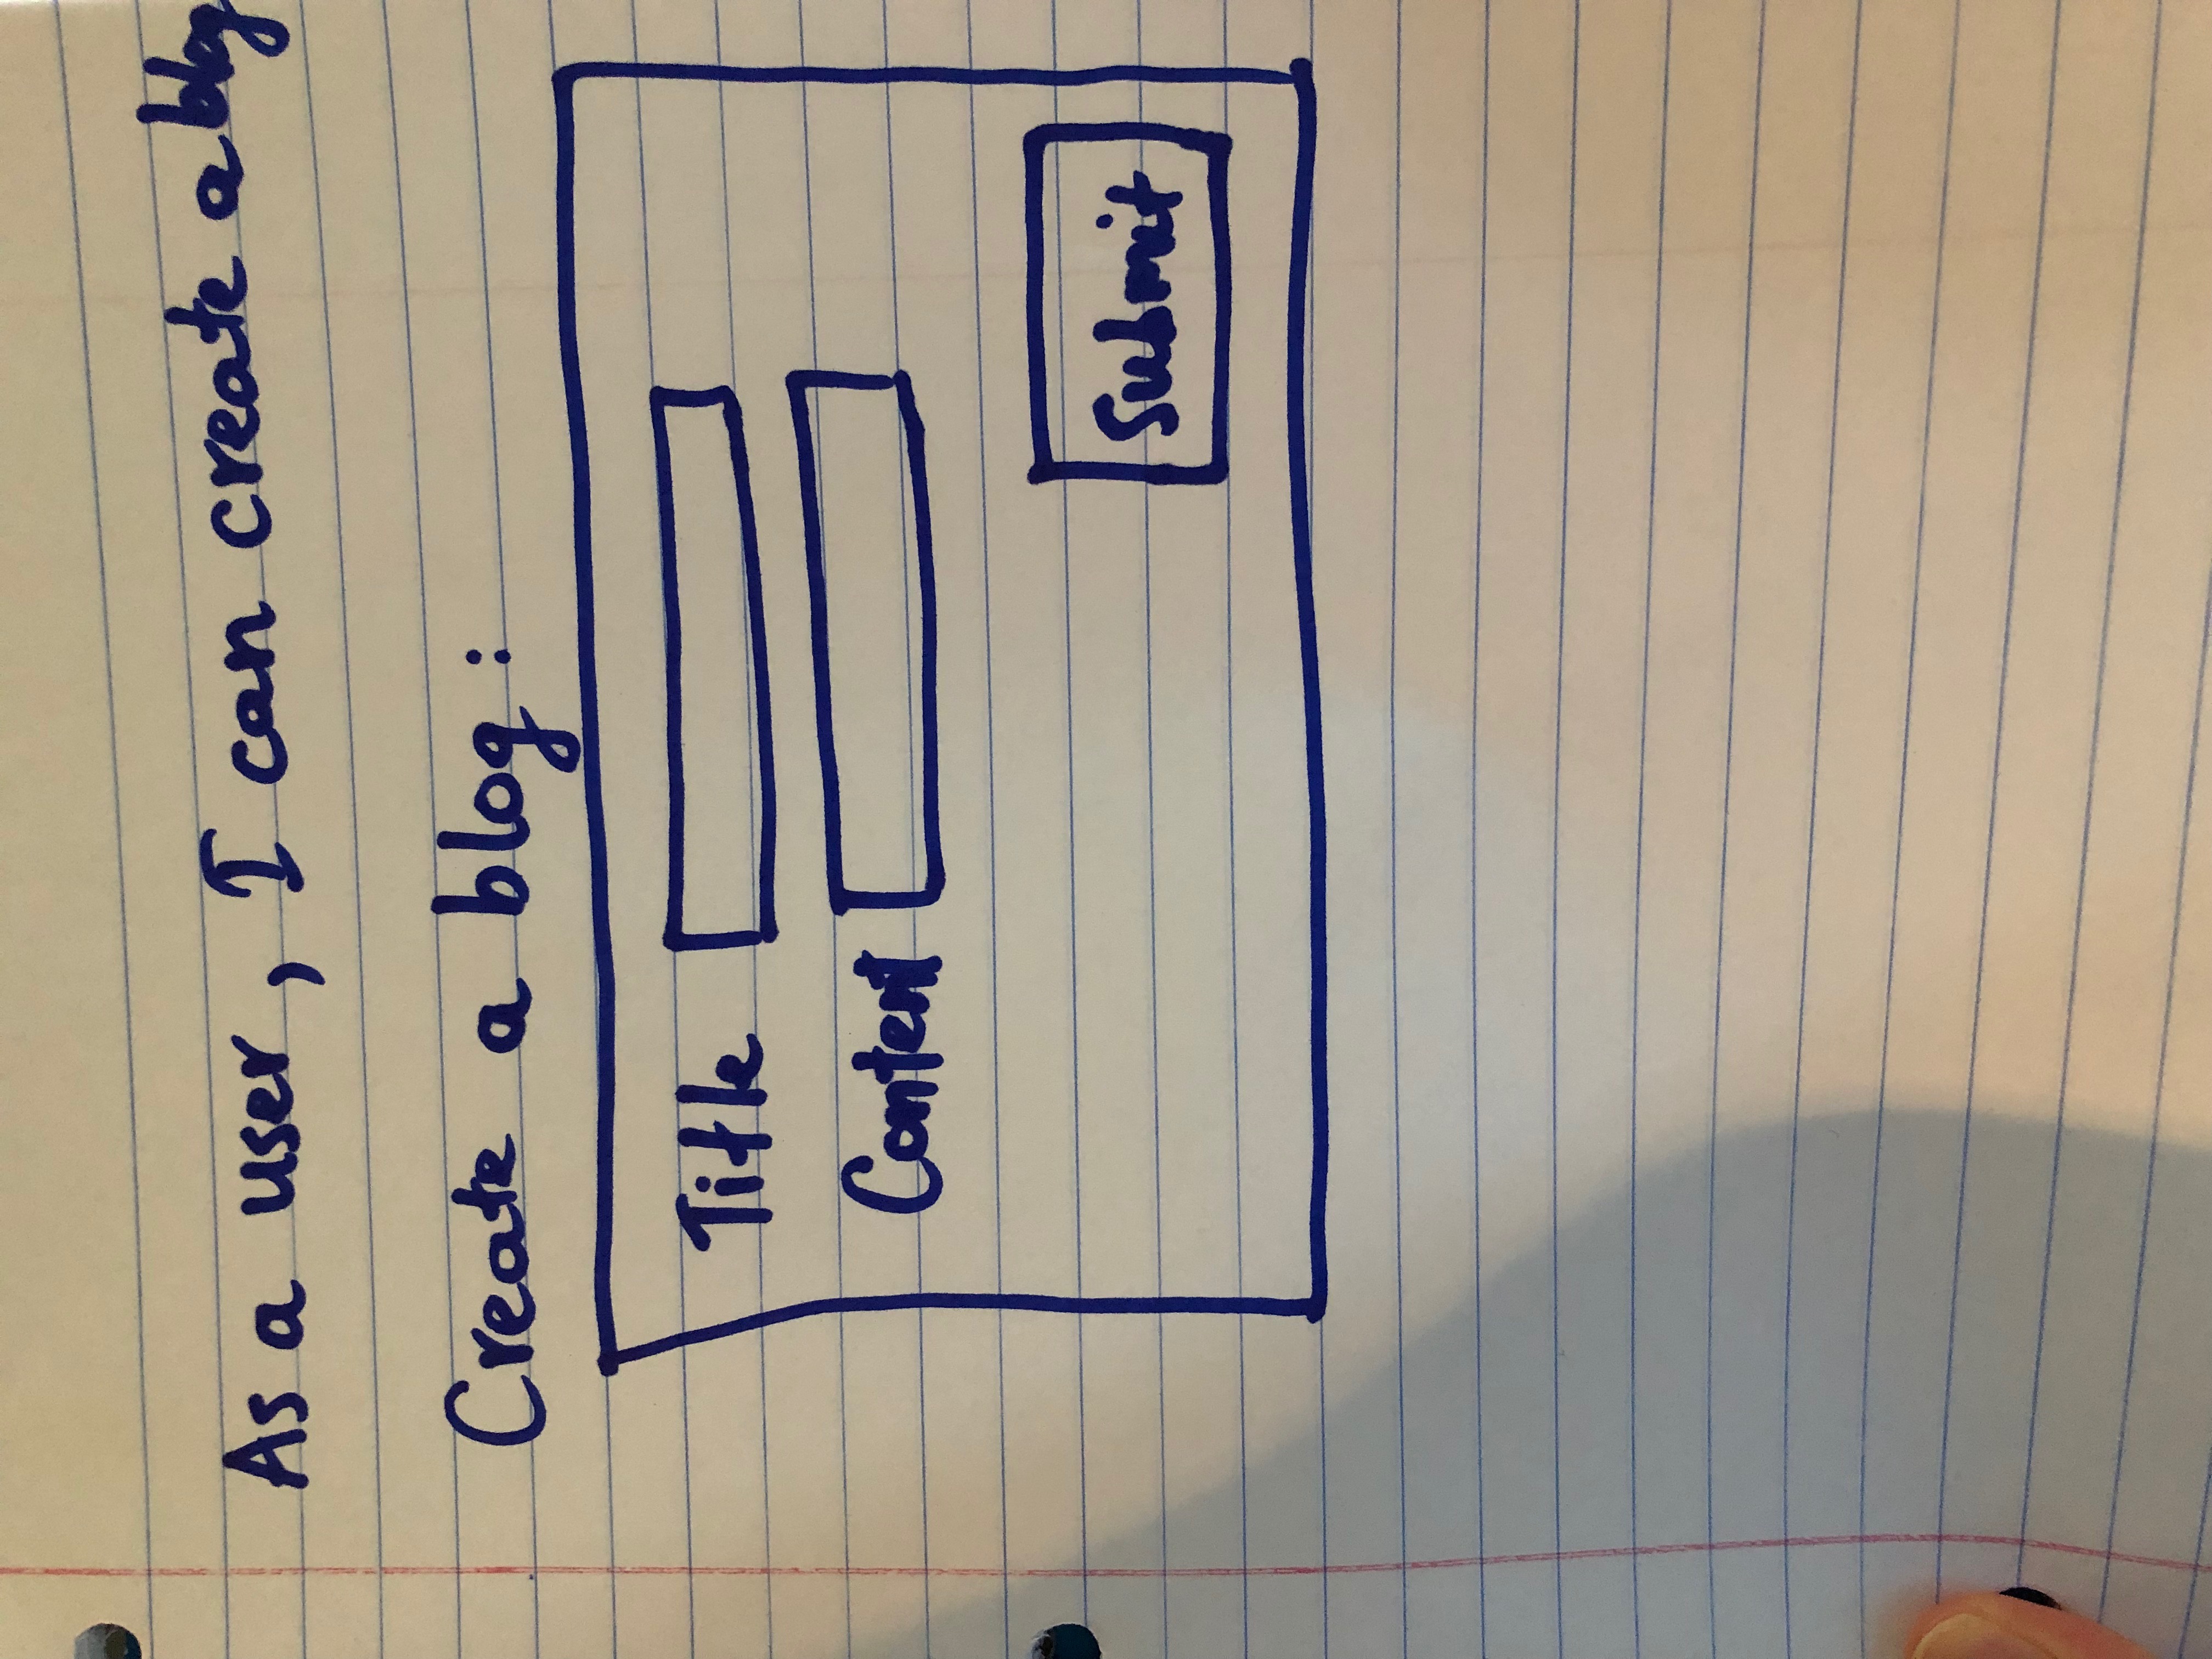 As a user, I can create a blog
Create a blog:
Title
Content
Submit